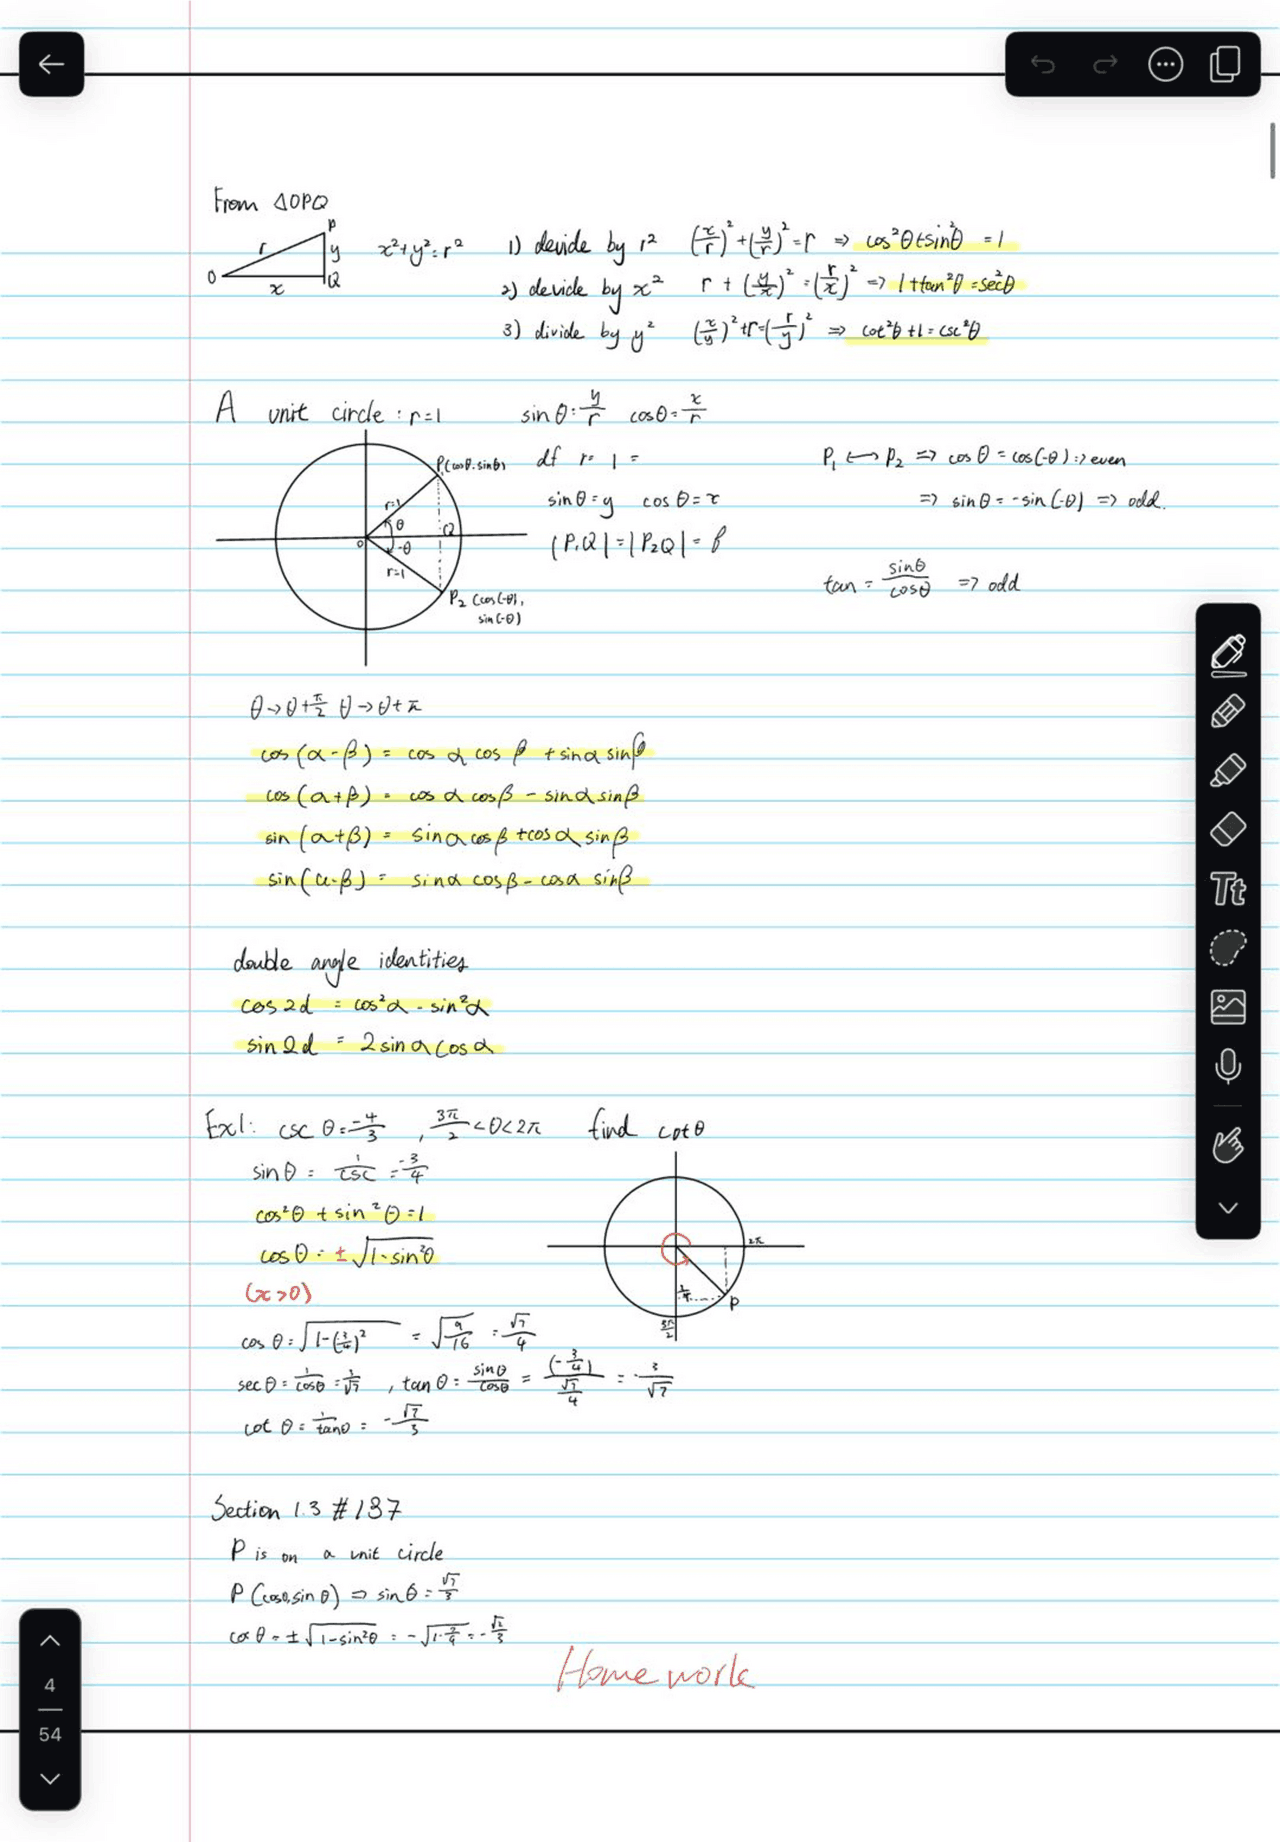 From △OPQ
P
r
y
O
Q
x
x²+y²=r²
1) devide by r² (x/r)²+(y/r)²=r ⇒ cos²θ+sin²θ = 1
2) devide by x² r + (y/x)² = (r/x)² ⇒ 1+tan²θ=sec²θ
3) divide by y² (x/y)²+r=(r/y)² ⇒ cot²θ+1=csc²θ
A unit circle : r=1 sinθ=y/r cosθ=x/r
P₁(cosθ, sinθ)
r=1
θ
Q
O
-θ
r=1
P₂ (cos(-θ),
sin(-θ)
df r= 1 =
sinθ=y cosθ=x
|P₁Q|=|P₂Q|=β
P₁ ⟷ P₂ ⇒ cosθ=cos(-θ) ⇒ even
⇒ sinθ=-sin(-θ) ⇒ odd.
tan = sinθ/cosθ ⇒ odd
θ→θ+π/2 θ→θ+π
cos(α-β) = cos α cos β +sinα sinβ
cos(α+β) = cos α cosβ - sinα sinβ
sin(α+β) = sinα cosβ +cosα sinβ
sin(α-β) = sinα cosβ - cosα sinβ
double angle identities
cos2d = cos²α - sin²α
sin2d = 2sinα cosα
Ex1: csc θ=-4/3 , 3π/2<θ<2π find cotθ
sinθ = 1/csc = -3/4
cos²θ + sin²θ=1
cosθ = ±√1-sin²θ
(x>0)
2π
P
3π/2
cosθ=√1-(3/4)² = √9/16 = √7/4
secθ=1/cosθ=1/√7 , tanθ= sinθ/cosθ = (-3/4)/(√7/4) = -3/√7
cot θ = 1/tanθ = -√7/3
Section 1.3 #137
P is on a unit circle
P(cosθ,sinθ) ⇒ sinθ=√7/3
cosθ=±√1-sin²θ = -√1-7/9 = -√2/3
Homework
Tt
4
54